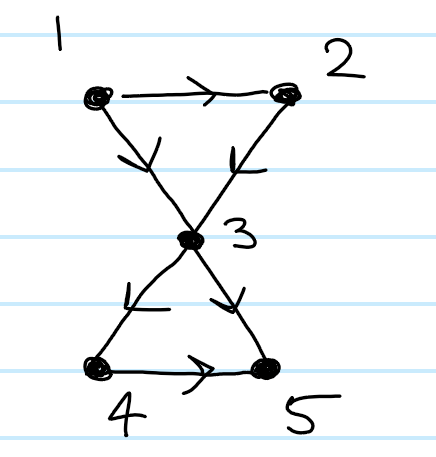 1 2
3
4 5